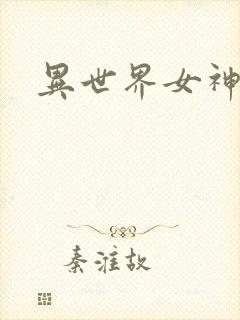 異世界女神
秦淮故